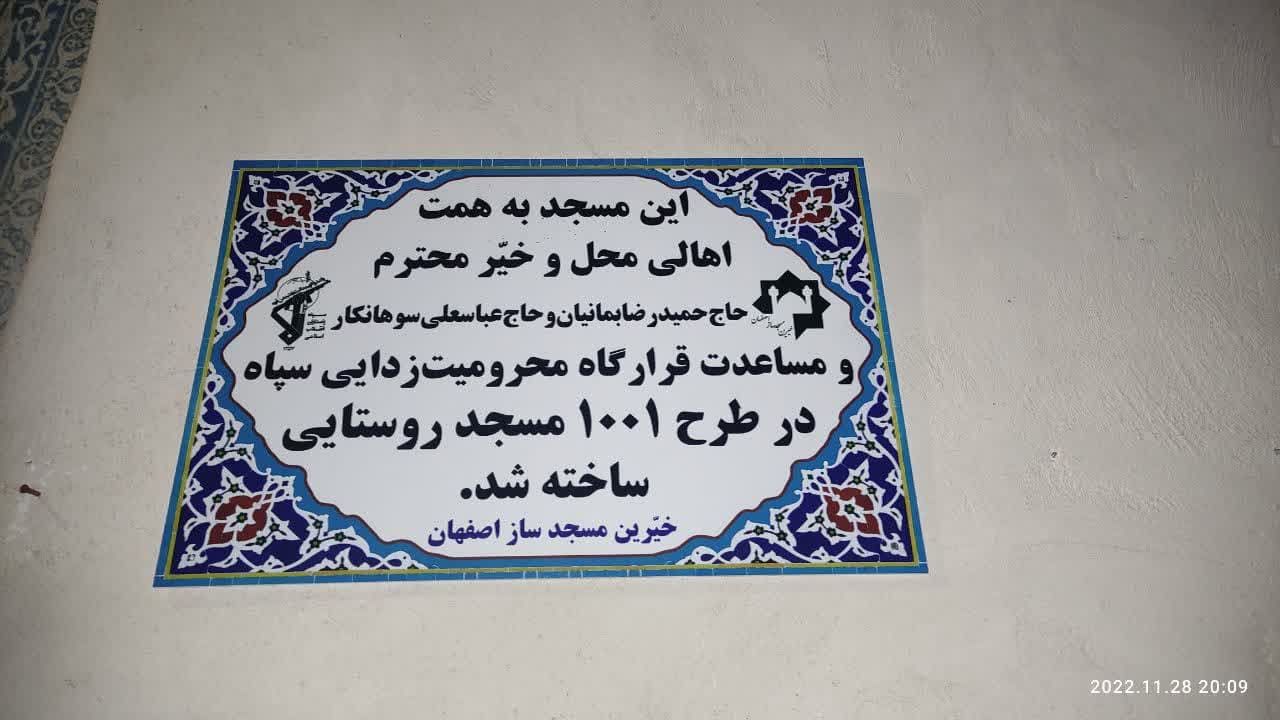 این مسجد به همت
اهالی محل و خیّر محترم
حاج حمیدرضا بمانیان و حاج عباسعلی سوهانکار
و مساعدت قرارگاه محرومیت‌زدایی سپاه
در طرح ۱۰۰۱ مسجد روستایی
ساخته شد.
خیّرین مسجد ساز اصفهان
خیرین مسجدساز اصفهان
2022.11.28 20:09